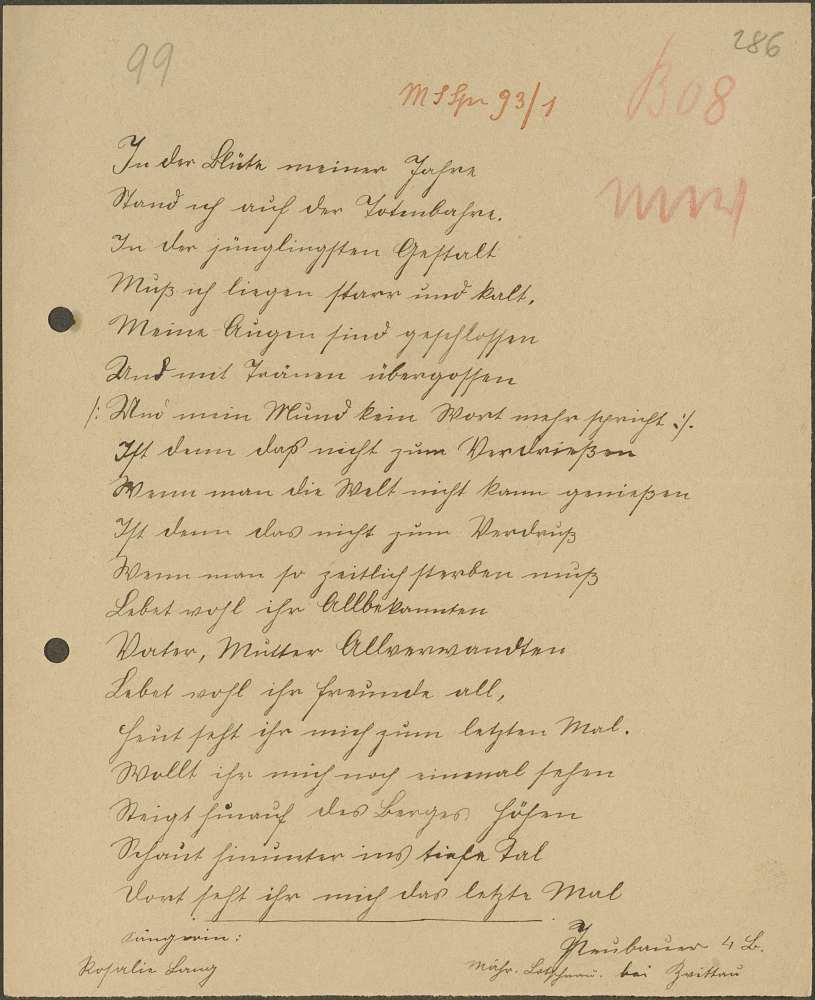 99
286
MS Spr 93/1
B08
In der Blüte meiner Jahre
Stand ich auf der Totenbahre.
In der jünglingsten Gestalt
Muß ich liegen starr und kalt,
Meine Augen sind geschlossen
Und mit Tränen übergossen
/: Und mein Mund kein Wort mehr spricht :/.
Ist denn daß nicht zum Verdrießen
Wenn man die Welt nicht kann genießen
Ist denn das nicht zum Verdruß
Wenn man so zeitlich sterben muß
Lebet wohl ihr Allbekannten
Vater, Mutter Allverwandten
Lebet wohl ihr Freunde all,
Heut seht ihr mich zum letzten Mal.
Wollt ihr mich noch einmal sehen
Steigt hinauf des Berges Höhen
Schaut hinunter ins tiefe Tal
Dort seht ihr mich das letzte Mal
Sängerin:
Neubauer 4 B.
Rosalie Lang
Mähr. Lotschnau. bei Zwittau